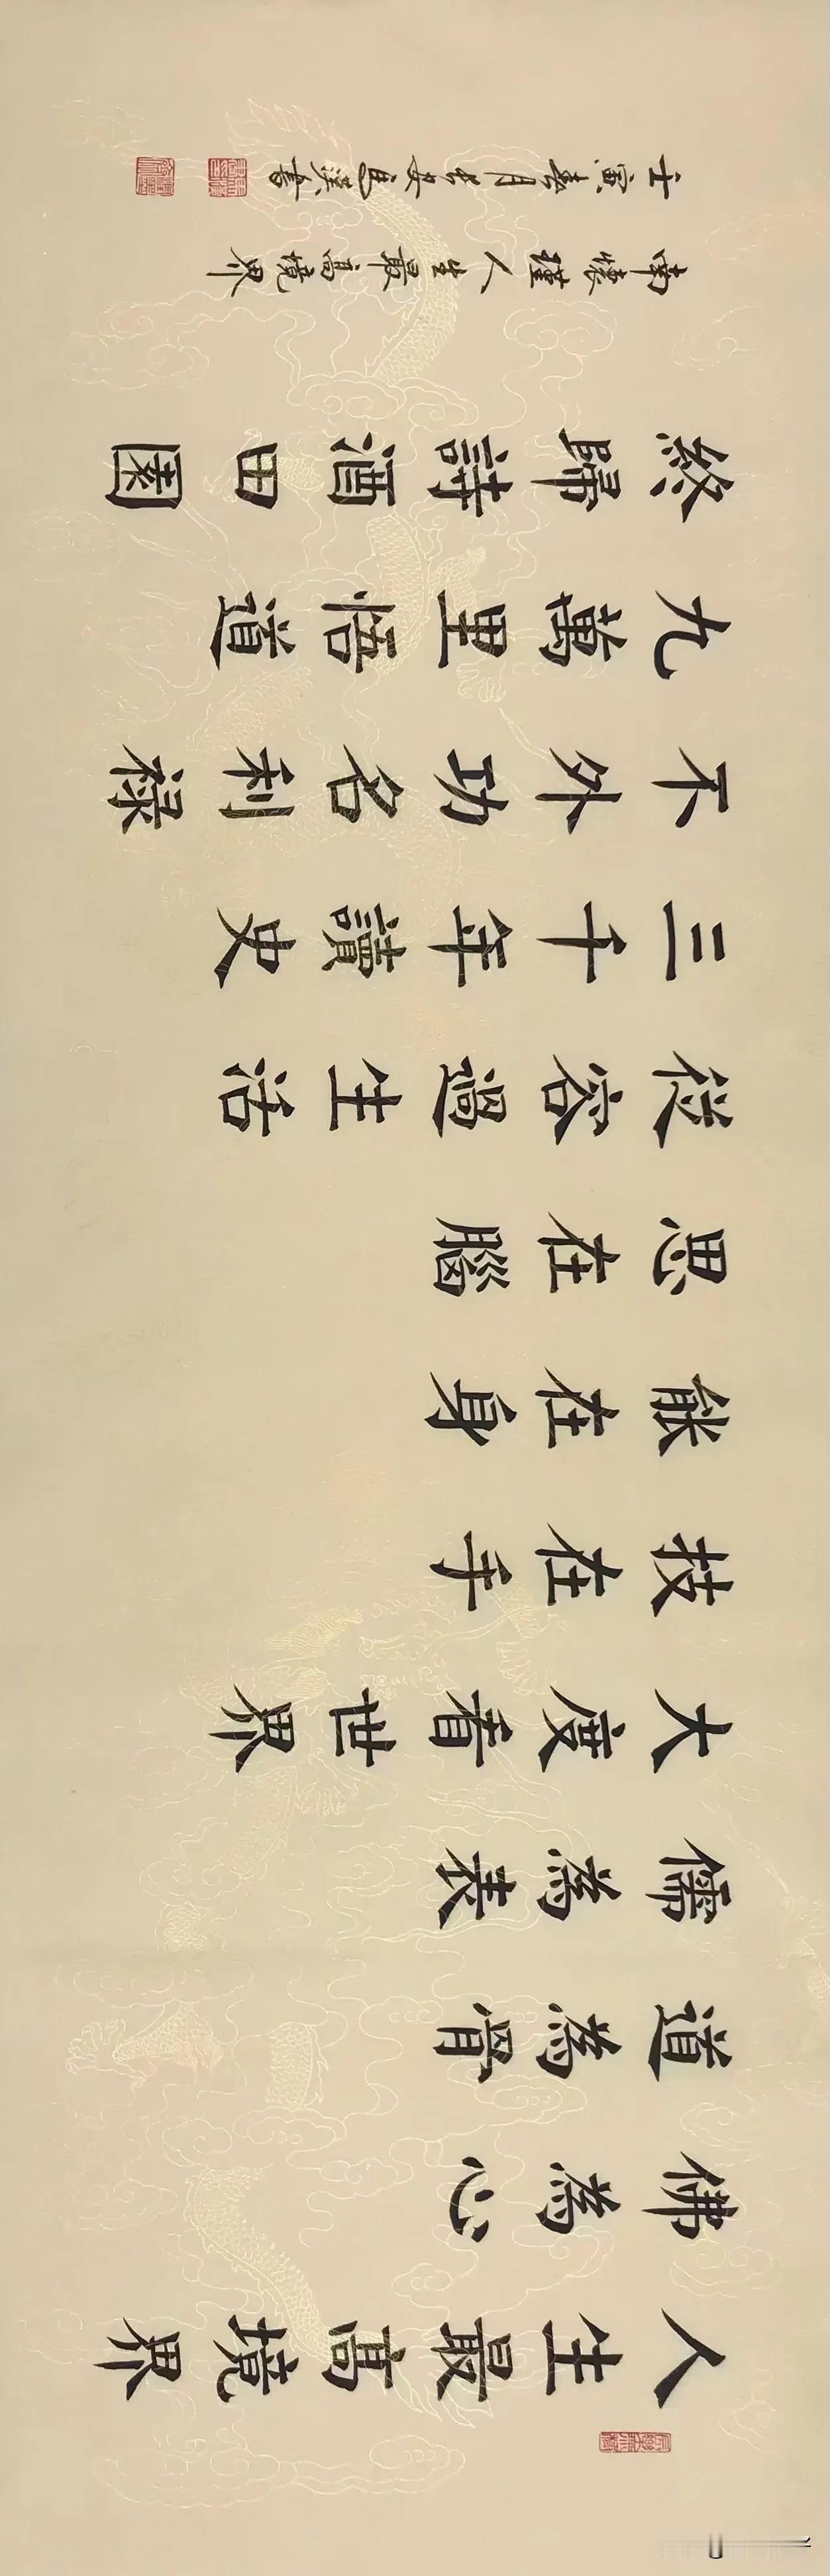 人生最高境界
佛為心
道為骨
儒為表
大度看世界
技在手
能在身
思在腦
從容過生活
三千年讀史
不外功名利祿
九萬里悟道
終歸詩酒田園
南懷瑾人生最高境界
壬寅春月長安漢書